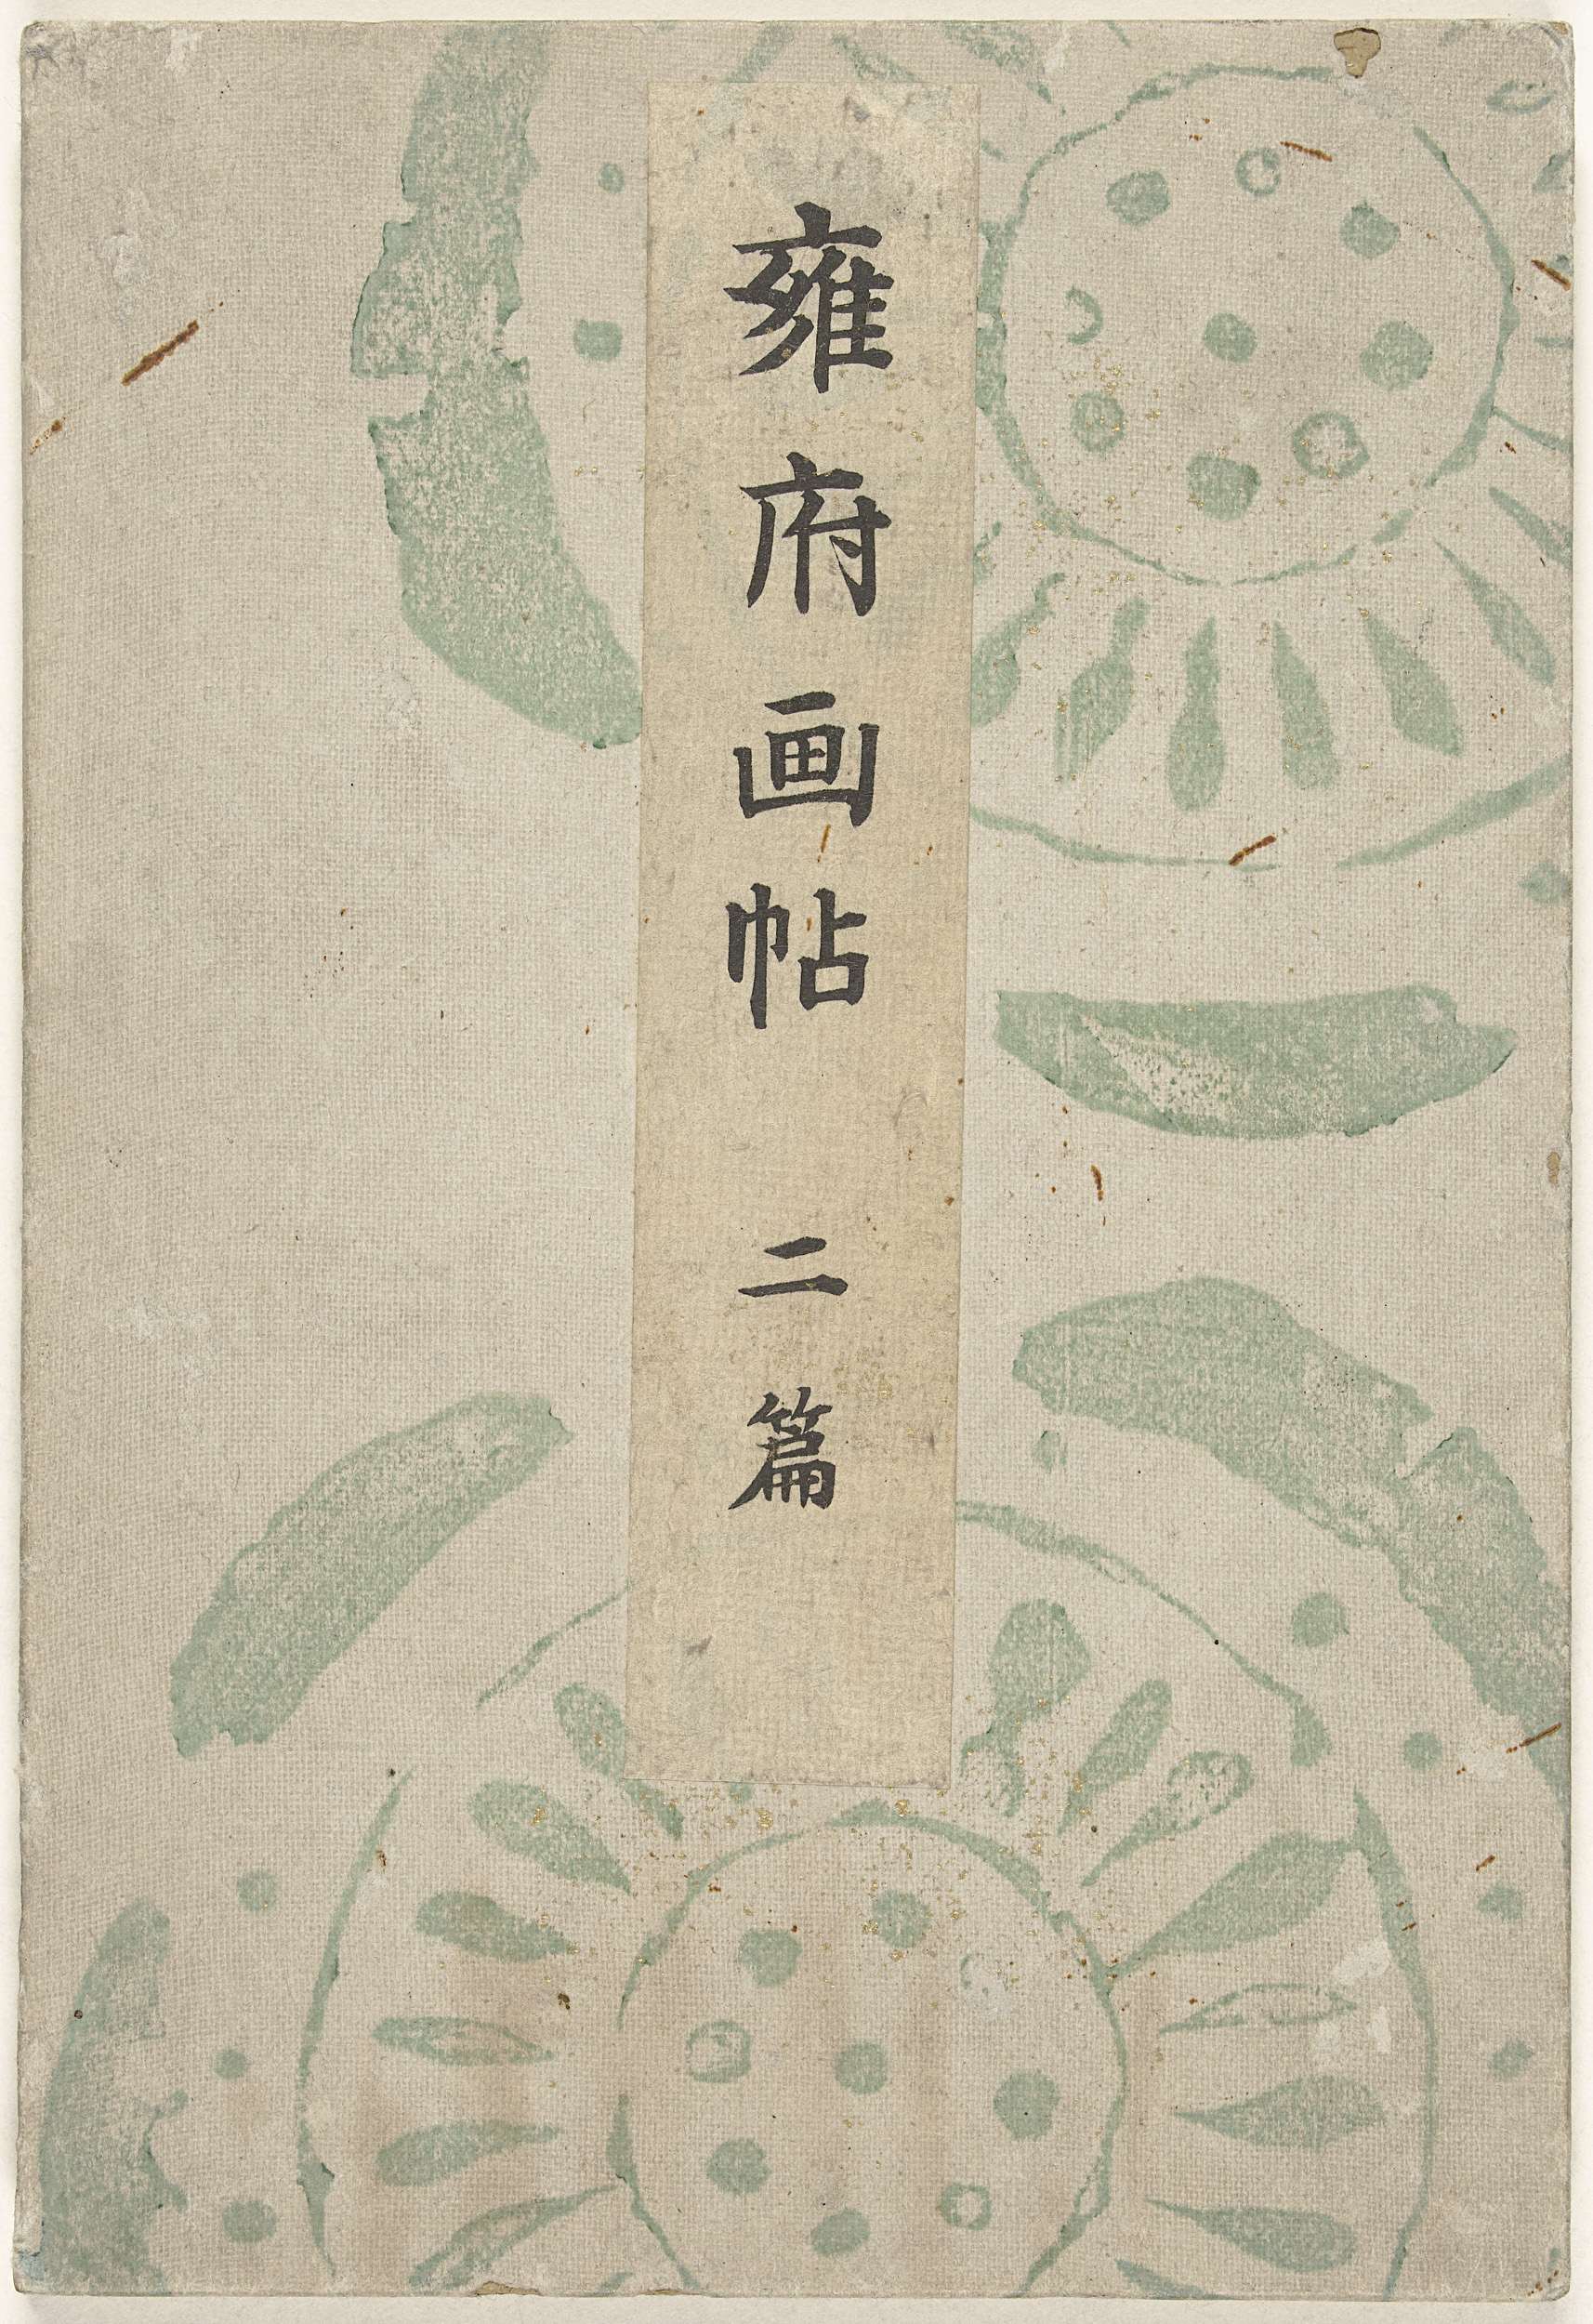 雍府画帖 二篇